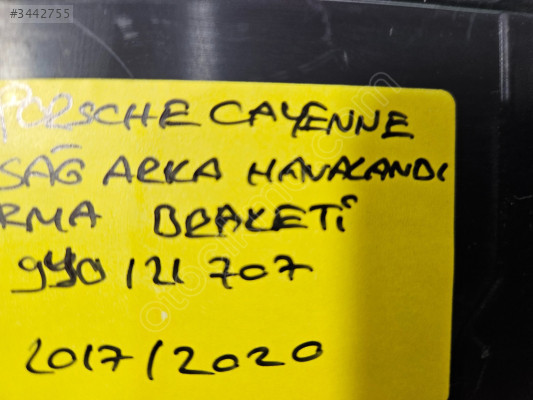 #3442755
PORSCHE CAYENNE
SAĞ ARKA HAVALANDI
RMA BRAKETİ
9Y0 121 707
2017/2020